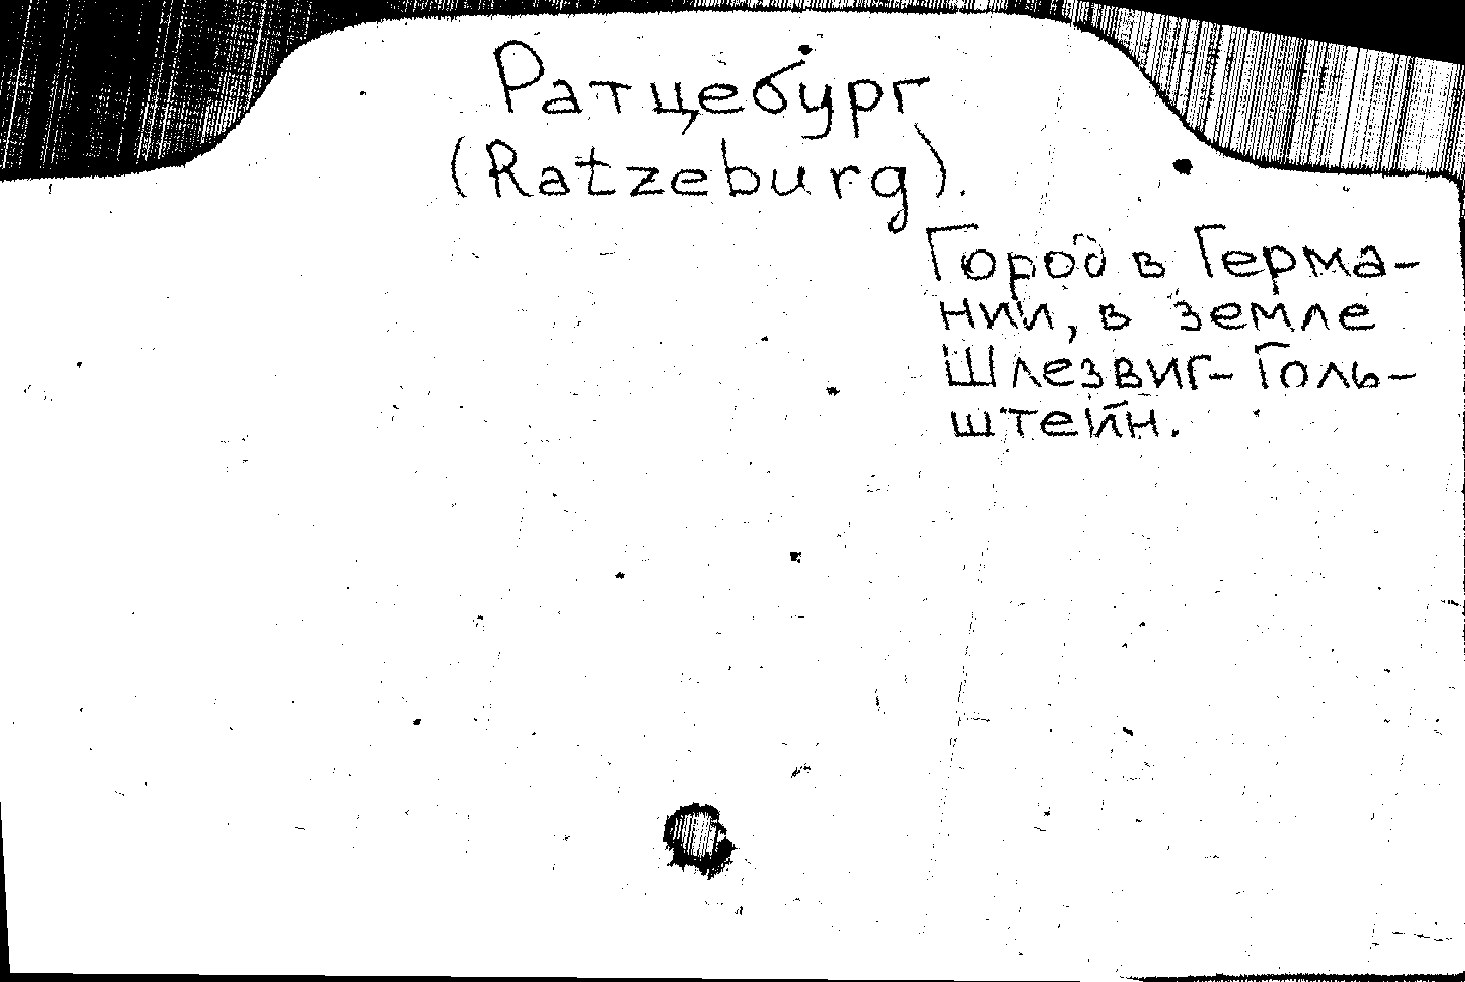 Ратцебург
(Ratzeburg).
Город в Герма-
нии, в земле
Шлезвиг-Голь-
штейн.